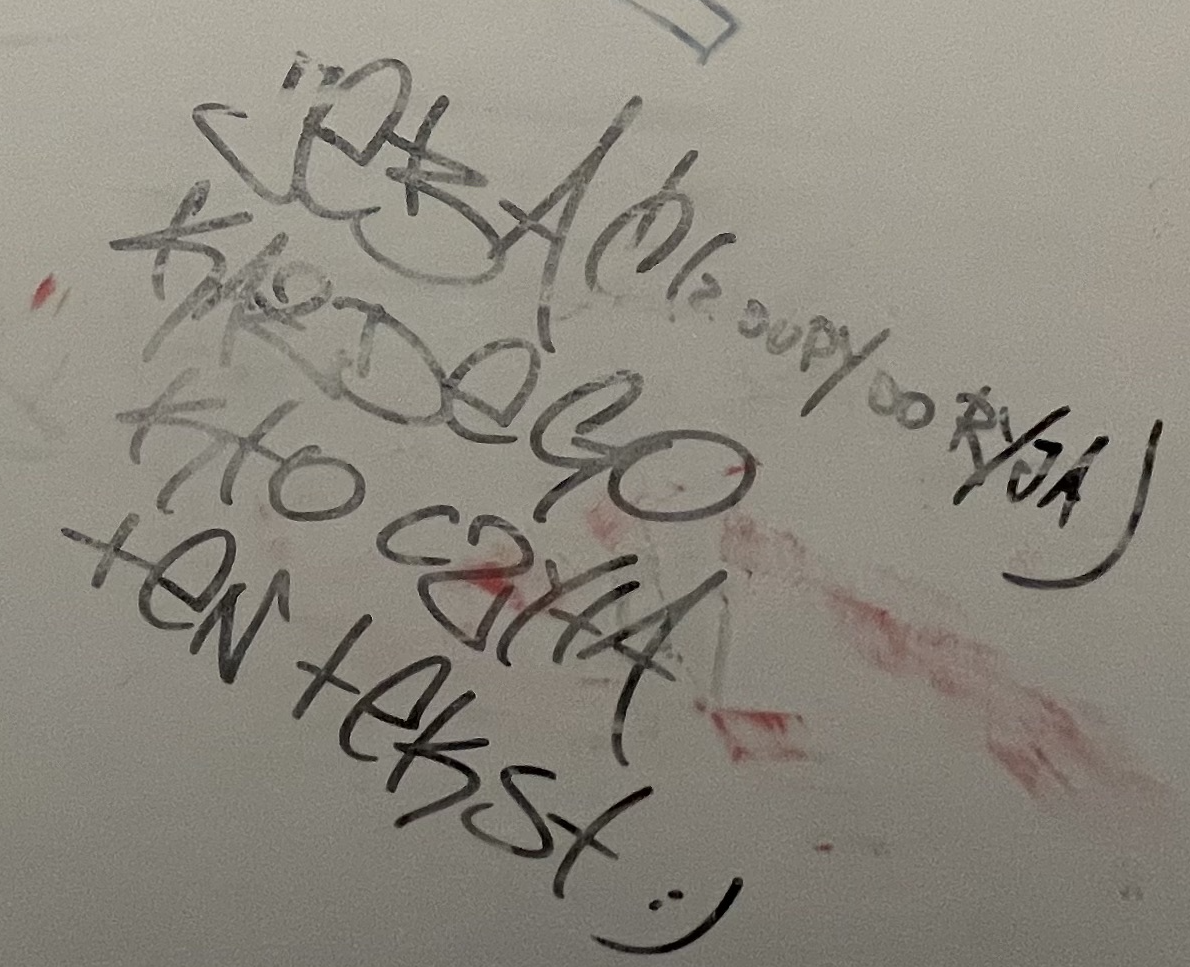 JEBAĆ (Z DUPY DO RYJA)
KAŻDEGO
KTO CZYTA
TEN TEKST :)